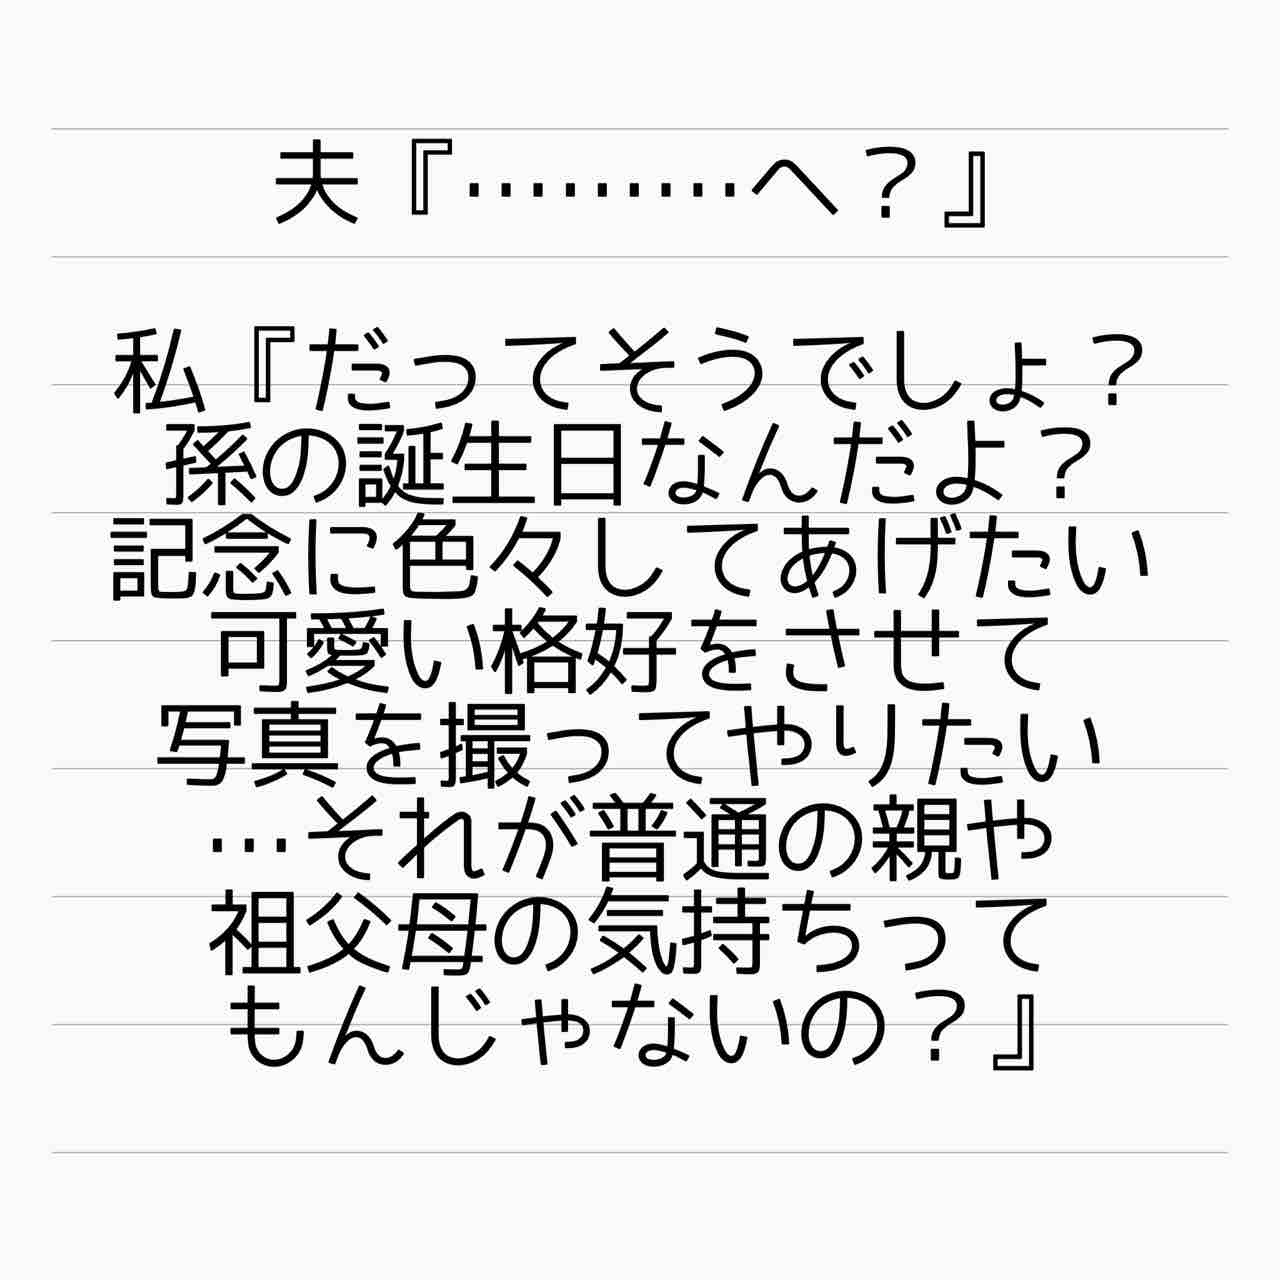 夫『………へ？』
私『だってそうでしょ？
孫の誕生日なんだよ？
記念に色々してあげたい
可愛い格好をさせて
写真を撮ってやりたい
…それが普通の親や
祖父母の気持ちって
もんじゃないの？』